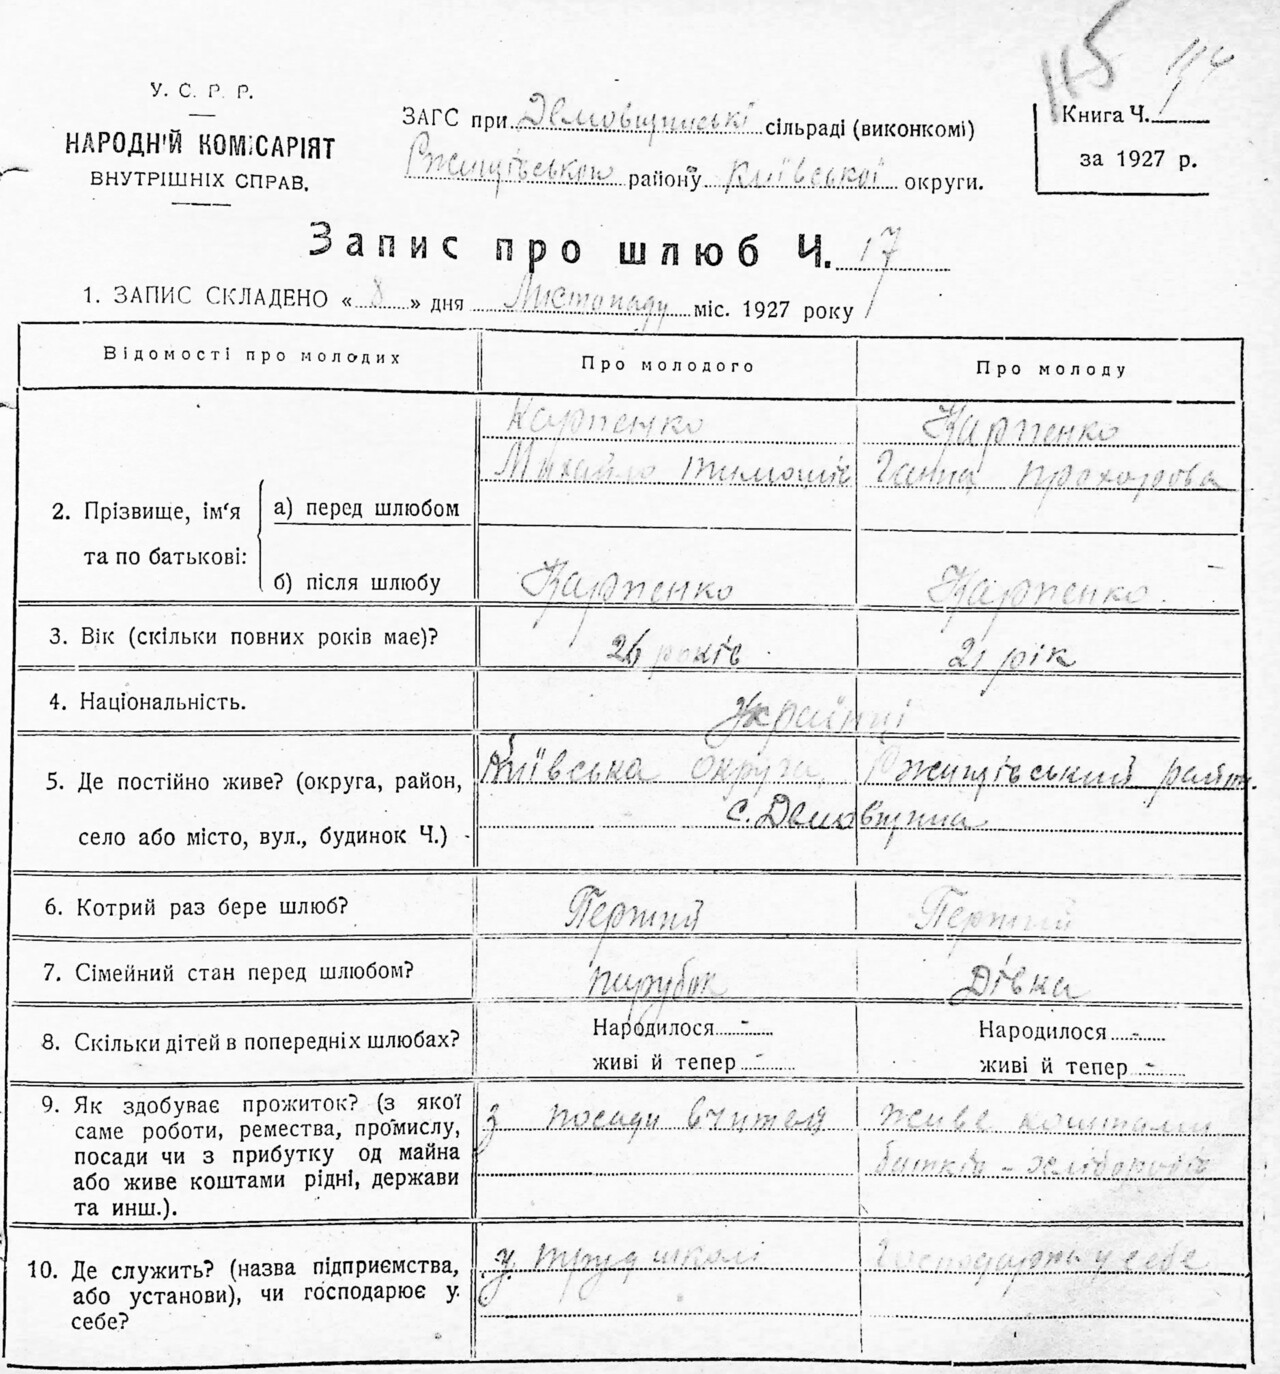 115 114
У. С. Р. Р.
НАРОДНІЙ КОМІСАРІЯТ
ВНУТРІШНІХ СПРАВ.
ЗАГС при Демовщинські сільраді (виконкомі)
Ржищівського району Київської округи.
Книга Ч. 1
за 1927 р.
Запис про шлюб Ч. 17
1. ЗАПИС СКЛАДЕНО « 8 » дня Листопаду міс. 1927 року
Відомості про молодих Про молодого Про молоду
Карпенко Карпенко
Михайло Тимошів Ганна Прохорова
2. Прізвище, ім'я
та по батькові:
а) перед шлюбом
б) після шлюбу Карпенко Карпенко
3. Вік (скільки повних років має)? 26 років 21 рік
4. Національність. Українці
5. Де постійно живе? (округа, район,
село або місто, вул., будинок Ч.)
Київська округа, Ржищівський район.
с. Демовщина
6. Котрий раз бере шлюб? Перший Перший
7. Сімейний стан перед шлюбом? парубок Дівка
8. Скільки дітей в попередніх шлюбах?
Народилося - Народилося -
живі й тепер - живі й тепер -
9. Як здобуває прожиток? (з якої
саме роботи, ремества, промислу,
посади чи з прибутку од майна
або живе коштами рідні, держави
та инш.).
з посади вчителя живе коштами
батьків - хліборобів
10. Де служить? (назва підприємства,
або установи), чи господарює у
себе?
у труд школі Господарюють у себе